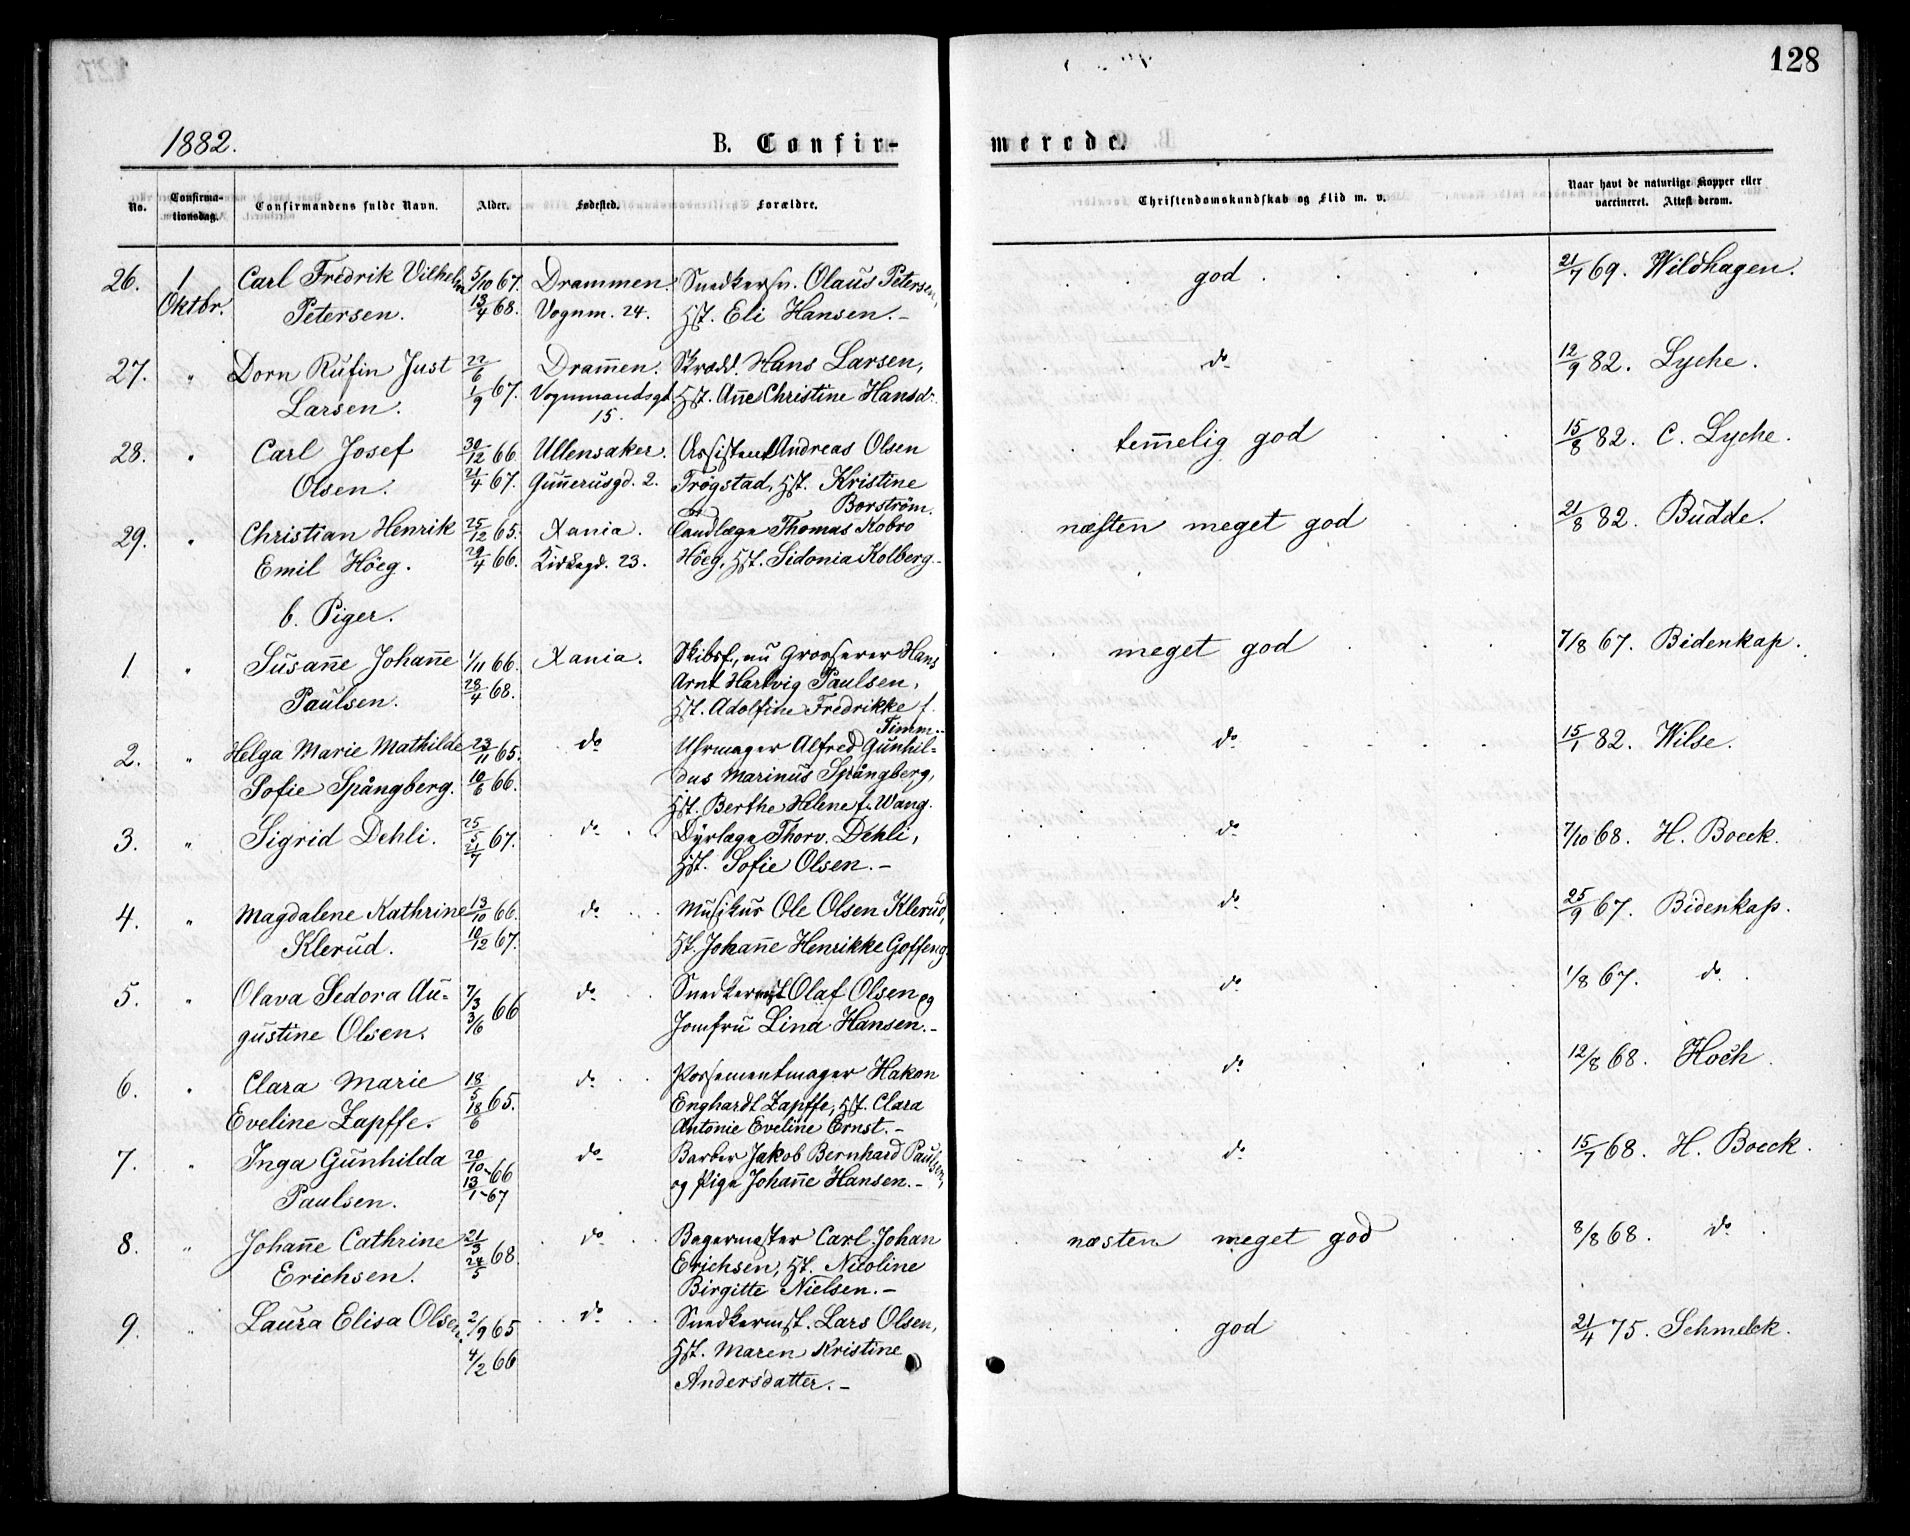 128
1882.
B. Confir-
merede.
No. Confirma-tionsdag. Confirmandens fulde Navn. Alder. Fødested. Forældre. Christendomskundskab og Flid m. v. Naar havt de naturlige Kopper eller vaccineret. Attest derom.
26. 1 Carl Fredrik Vilhelm 5/10 67. Drammen. Snedkersv. Olaus Petersen, god 21/7 69. Wildhagen.
Oktbr. Petersen. 13/4 68. Vognm. 24. Hst. Eli Hansen.-
27. " Dorn Rufin Just 22/6 Dram̅en. Skrædd. Hans Larsen, do 12/9 82. Lyche.
Larsen. 1/9 67. Vognmandsgd. Hst. An̅e Christine Hansdr.
15.
28. " Carl Josef 30/12 66 Ullensaker. Assistent Andreas Olsen tem̅elig god 15/8 82. C. Lyche.
Olsen. 21/4 67. Gun̅erusgd. 2. Trøgstad, Hst. Kristine
Borström.
29. " Christian Henrik 25/12 65. Xania. Candlæge Thomas Kobro næsten meget god 21/8 82. Budde.
Emil Höeg. 29/4 66. Kirkegd. 23. Höeg, Hst. Sidonia Kolberg.-
b. Piger.
1. " Susan̅e Johan̅e 1/11 66. Xania. Skibsf., nu Grosserer Hans meget god 7/8 67. Bidenkap.
Paulsen. 28/4 68. Arnt Hartvig Paulsen,
Hst. Adolfine Fredrikke f.
Timm.-
2. " Helga Marie Mathilde 23/11 65. do Uhrmager Alfred Gunhil- do 15/1 82. Wilse.
Sofie Spångberg. 10/6 66. dus Marinus Spångberg,
Hst. Berthe Helene f. Wang.
3. " Sigrid Dehli. 25/5 67. do Dyrlæge Thorv. Dehli, do 7/10 68. H. Boeck.
21/7 Hst. Sofie Olsen.-
4. " Magdalene Kathrine 13/10 66. do Musikus Ole Olsen Klerud, do 25/9 67. Bidenkap.
Klerud. 10/12 67. Hst. Johan̅e Henrikke Goffeng.
5. " Olava Sedora Au- 7/3 66 do Snedkermst Olaf Olsen og do 1/8 67. do
gustine Olsen. 3/6 Jomfru Lina Hansen.-
6. " Clara Marie 18/5 65. do Possementmager Hakon do 12/8 68. Hoch.
Eveline Zapffe. 18/6 Enghardt Zapffe, Hst. Clara
Antonie Eveline Ernst.-
7. " Inga Gunhilda 20/10-66 do Barber Jakob Bernhard Paulsen, do 15/7 68. H. Boeck.
Paulsen. 13/1-67 og Pige Johan̅e Hansen.-
8. " Johan̅e Cathrine 21/3 68. do Bagermester Carl Johan næsten meget god 8/8 68. do
Erichsen. 24/5 Erichsen, Hst. Nicoline
Birgitte Nielsen.-
9. " Laura Elisa Olsen. 2/9 65 do Snedkermst. Lars Olsen, god 21/4 75. Schmelck.
4/2 66 Hst. Maren Kristine
Andersdatter.-